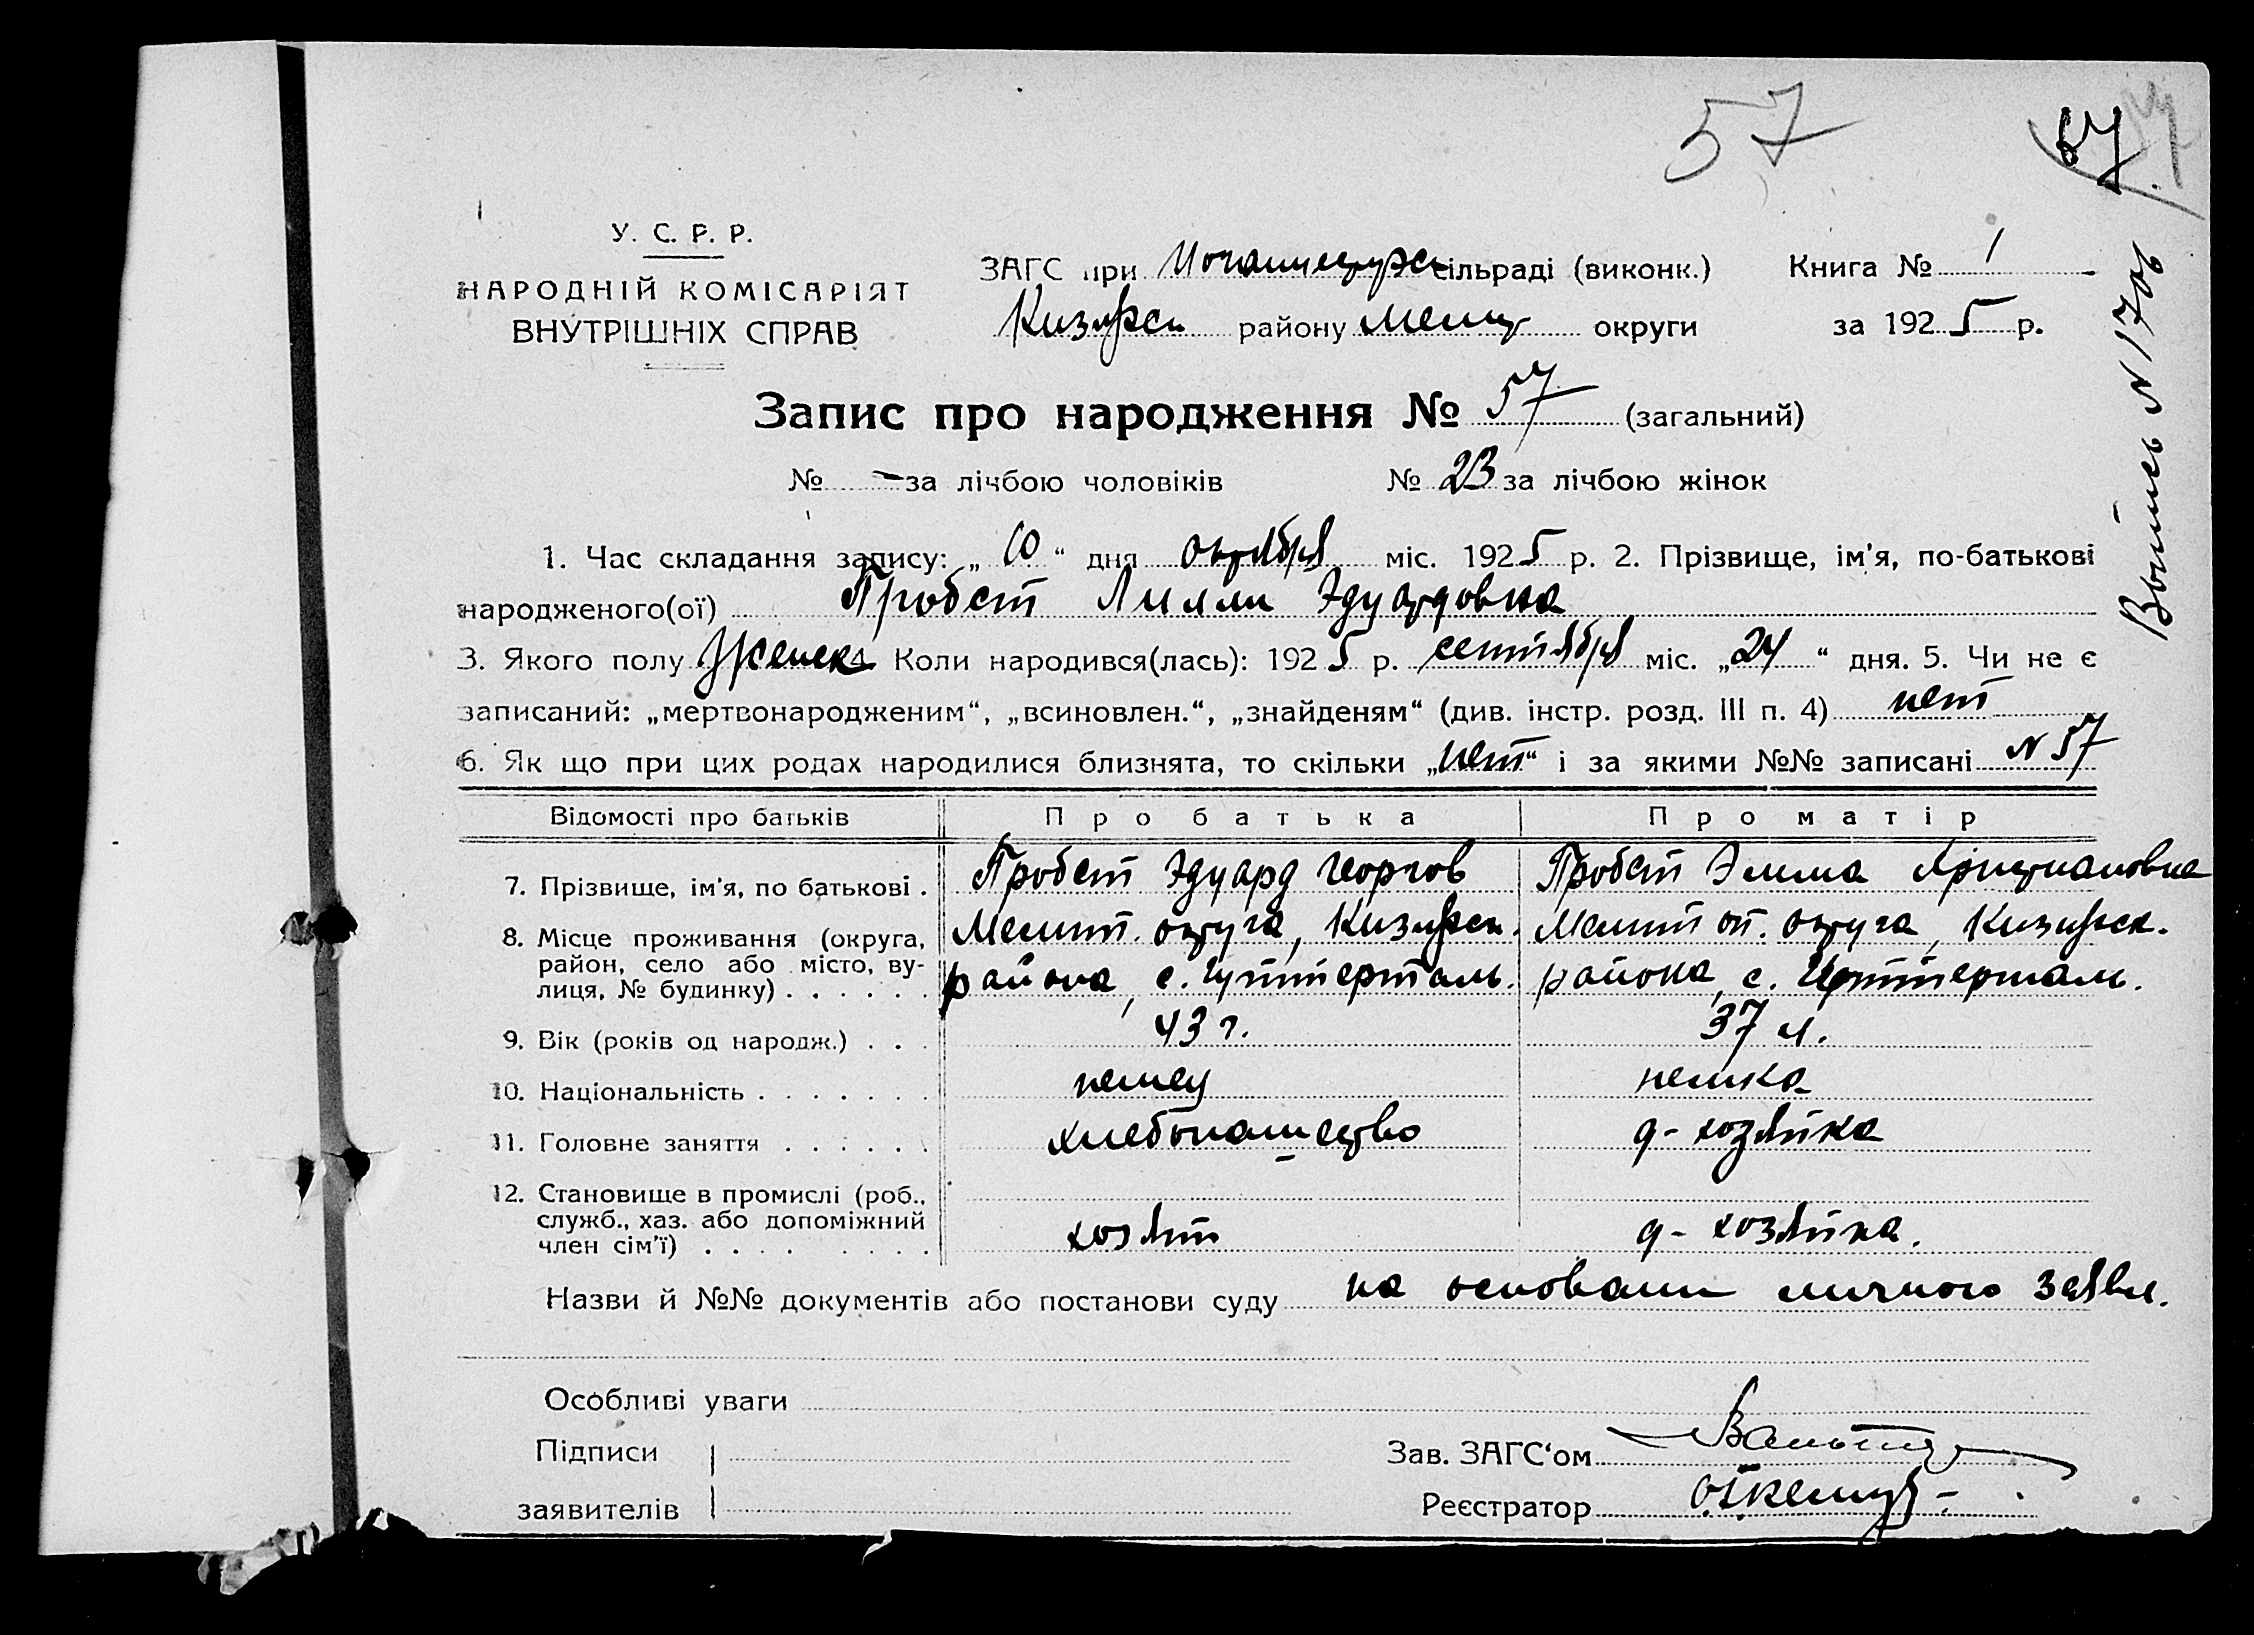 57
57
У. С. Р. Р.
НАРОДНІЙ КОМІСАРІЯТ
ВНУТРІШНІХ СПРАВ
ЗАГС при сільраді (виконк.) Книга № 1
району Мелит округи за 1925 р.
Запис про народження № 57 (загальний)
№ - за лічбою чоловіків № 23 за лічбою жінок
1. Час складання запису: „10“ дня октября міс. 1925 р. 2. Прізвище, ім'я, по-батькові
народженого(ої) Пробст Лилли Эдуардовна
3. Якого полу женск 4. Коли народився(лась): 1925 р. сентября міс. „24“ дня. 5. Чи не є
записаний: „мертвонародженим“, „всиновлен.“, „знайденям“ (див. інстр. розд. III п. 4) нет
6. Як що при цих родах народилися близнята, то скільки „нет“ і за якими №№ записані N 57
Відомості про батьків Про батька Про матір
7. Прізвище, ім'я, по батькові . Пробст Эдуард Георгов Пробст Эмма Христиановна
8. Місце проживання (округа, район, село або місто, вулиця, № будинку) . . . . . .
Мелит. округа, Кизиярск. Мелитоп. округа, Кизиярск.
района, с. Гуттерталь. района, с. Гуттерталь.
9. Вік (років од народж.) . . . 43 г. 37 л.
10. Національність . . . . . . . немец немка
11. Головне заняття . . . . . . хлебопашество д-хозяйка
12. Становище в промислі (роб., служб., хаз. або допоміжний член сім'ї) . . . . . . . . хозяин д-хозяйка.
Назви й №№ документів або постанови суду на основании личного заявл.
Особливі уваги
Підписи
заявителів
Зав. ЗАГС‘ом
Реєстратор
N 1706